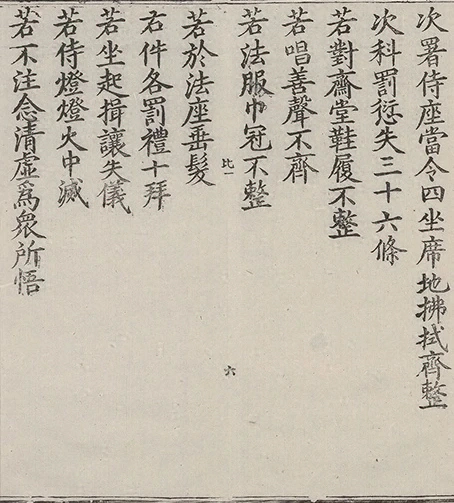 次署侍座當令四坐席地拂拭齊整
次科罰愆失三十六條
若對齋堂鞋履不整
若唱善聲不齊
若法服巾冠不整
比一
六
若於法座垂髮
右件各罰禮十拜
若坐起揖讓失儀
若侍燈燈火中滅
若不注念清虛爲衆所悟